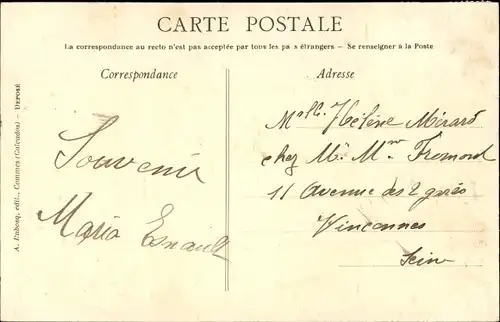 CARTE POSTALE
La correspondance au recto n'est pas acceptée par tous les pays étrangers - Se renseigner à la Poste
Correspondance
Adresse
Souvenir
Maria Esnault
Melle. Hélène Mérard
chez M. Mme Fremond
11 Avenue des 2 gares
Vincennes
Seine
A. Dubosq, édit., Commes (Calvados) - DÉPOSÉ